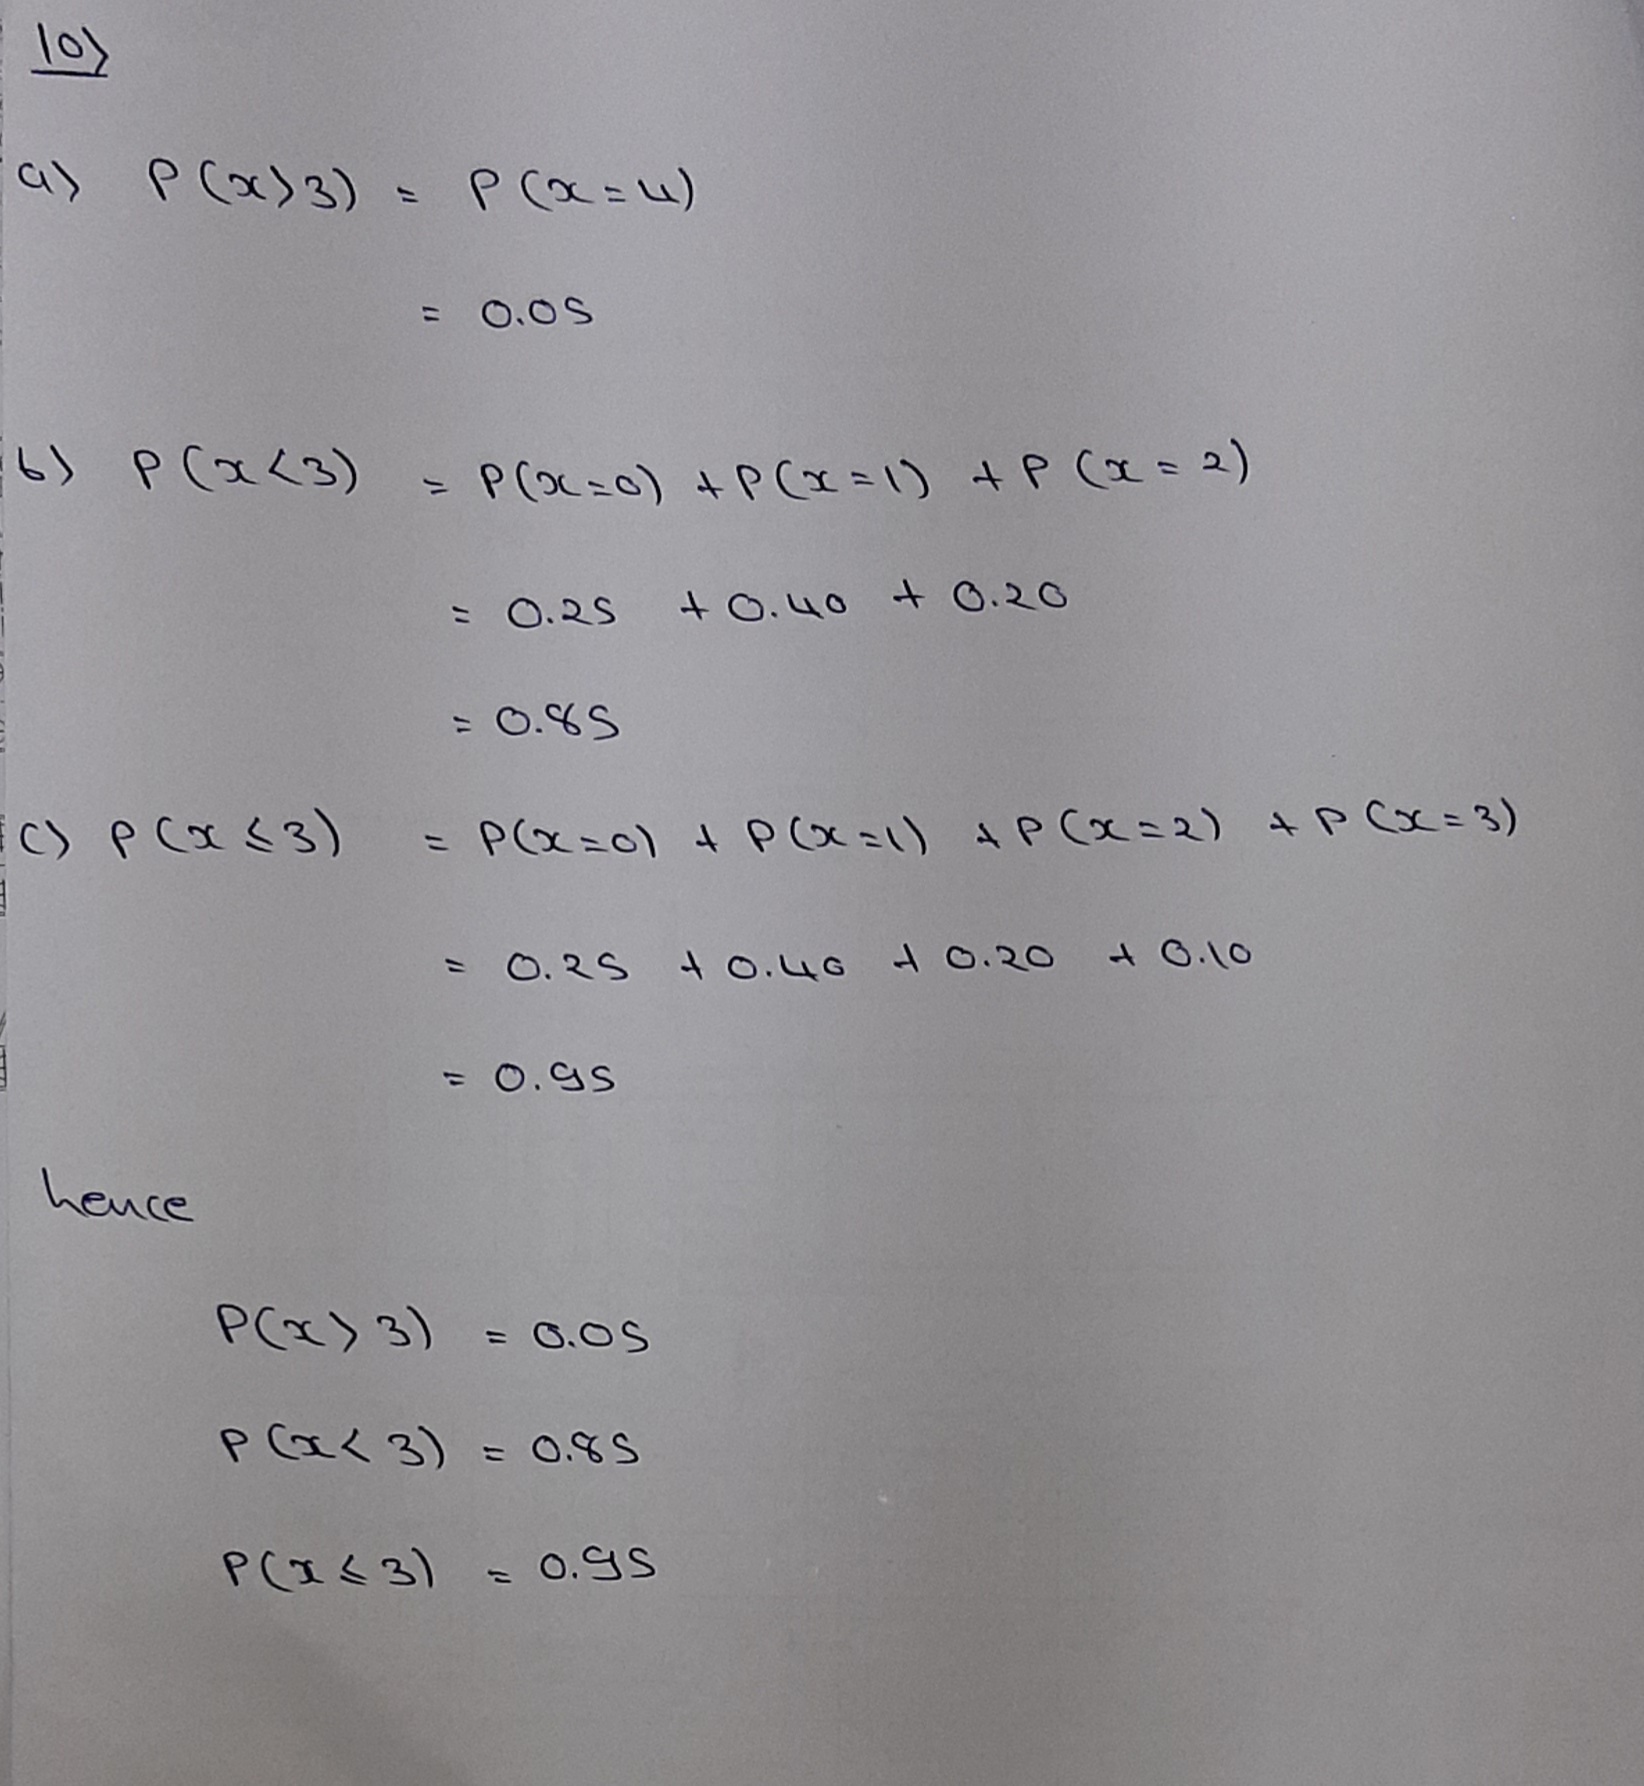 10)
a) P(x>3) = P(x=4)
= 0.05
b) P(x<3) = P(x=0) + P(x=1) + P(x=2)
= 0.25 + 0.40 + 0.20
= 0.85
c) P(x≤3) = P(x=0) + P(x=1) + P(x=2) + P(x=3)
= 0.25 + 0.40 + 0.20 + 0.10
= 0.95
hence
P(x>3) = 0.05
P(x<3) = 0.85
P(x≤3) = 0.95